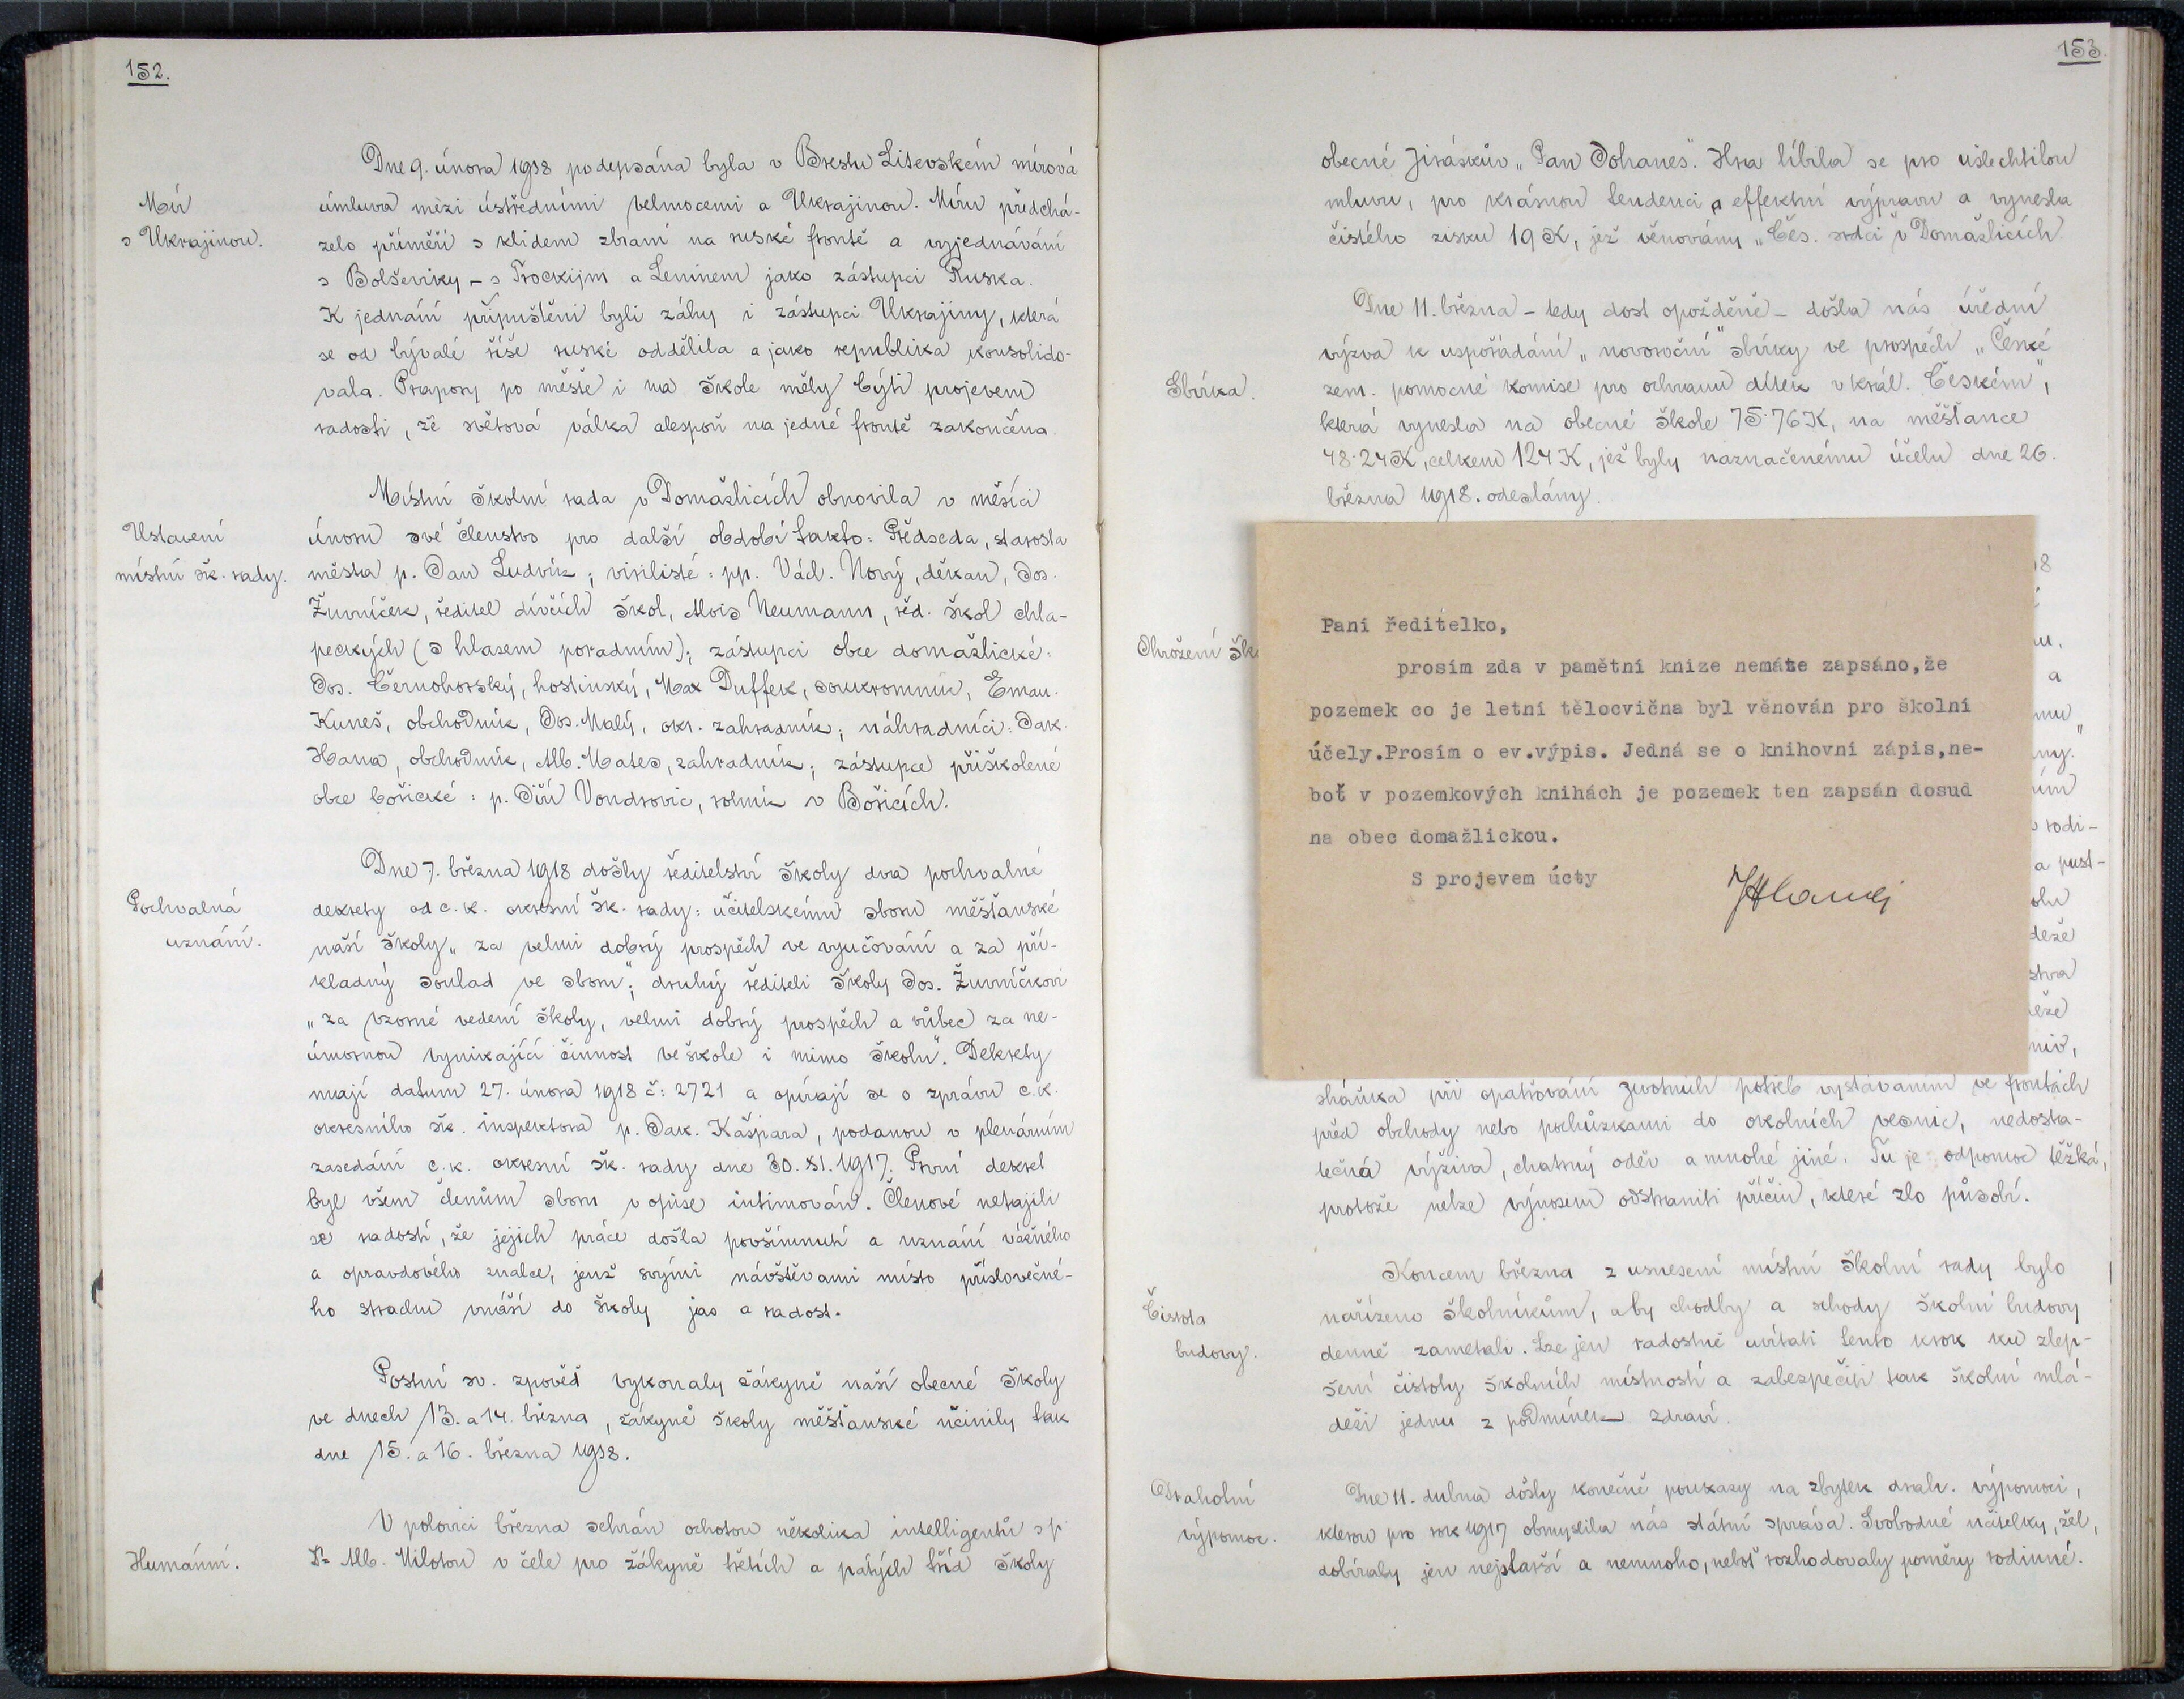 152.
Dne 9. února 1918 podepsána byla v Brestu Litevském mírová
Mír
s Ukrajinou.
úmluva mezi ústředními velmocemi a Ukrajinou. Míru předchá-
zelo příměří s klidem zbraní na ruské frontě a vyjednávání
s Bolševiky - s Trockijm a Leninem jako zástupci Ruska.
K jednání připuštěni byli záhy i zástupci Ukrajiny, která
se od bývalé říše ruské oddělila a jako republika konsolido-
vala. Prapory po městě i na škole měly býti projevem
radosti, že světová válka alespoň na jedné frontě zakončena.
Místní školní rada v Domažlicích obnovila v měsíci
Ustavení
místní šk. rady.
únoru své členstvo pro další období takto: Předseda, starosta
města p. Jan Ludvík; virilisté: pp. Václ. Nový, děkan, Jos.
Žurníček, ředitel dívčích škol, Alois Neumann, řed. škol chla-
peckých (s hlasem poradním); zástupci obce domažlické:
Jos. Černohorský, hostinský, Max Duffek, soukromník, Eman.
Kuneš, obchodník, Jos. Malý, okr. zahradník; náhradníci: Jak.
Hana, obchodník, Alb. Mates, zahradník; zástupce přiškolené
obce bořické: p. Jiří Vondrovic, rolník v Bořicích.
Dne 7. března 1918 došly ředitelství školy dva pochvalné
Pochvalná
uznání.
dekrety od c. k. okresní šk. rady: učitelskému sboru měšťanské
naší školy „za velmi dobrý prospěch ve vyučování a za pří-
kladný soulad ve sboru“; druhý řediteli školy Jos. Žurníčkovi
„za vzorné vedení školy, velmi dobrý prospěch a vůbec za ne-
úmornou vynikající činnost ve škole i mimo školu“. Dekrety
mají datum 27. února 1918 č: 2721 a opírají se o zprávu c. k.
okresního šk. inspektora p. Jak. Kašpara, podanou v plenárním
zasedání c. k. okresní šk. rady dne 30. XI. 1917. První dekret
byl všem členům sboru v opise intimován. Členové netajili
se radostí, že jejich práce došla povšimnutí a uznání vážného
a opravdového znalce, jenž svými návštěvami místo příslovečné-
ho strachu vnáší do školy jas a radost.
Postní sv. zpověď vykonaly žákyně naší obecné školy
ve dnech 13. a 14. března, žákyně školy měšťanské učinily tak
dne 15. a 16. března 1918.
V polovici března sehrán ochotou několika intelligentů s p.
Humánní.
Dr Alb. Milotou v čele pro žákyně třetích a pátých tříd školy
153.
obecné Jiráskův „Pan Johanes“. Hra líbila se pro ušlechtilou
mluvu, pro krásnou tendenci a effektní výpravu a vynesla
čistého zisku 19 K, jež věnovány „Čes. srdci“ v Domažlicích.
Dne 11. března - tedy dost opožděně - došla nás úřední
výzva k uspořádání „novoroční“ sbírky ve prospěch „České
Sbírka.
zem. pomocné komise pro ochranu dítek v král. Českém“,
která vynesla na obecné škole 75·76 K, na měšťance
48·24 K, celkem 124 K, jež byly naznačenému účelu dne 26.
března 1918. odeslány.
Ohrožení
Paní ředitelko,
prosím zda v pamětní knize nemáte zapsáno,že
pozemek co je letní tělocvična byl věnován pro školní
účely.Prosím o ev.výpis. Jedná se o knihovní zápis,ne-
boť v pozemkových knihách je pozemek ten zapsán dosud
na obec domažlickou.
S projevem úcty
sháňka při opatřování životních potřeb vystáváním ve frontách
před obchody nebo pochůzkami do okolních vesnic, nedosta-
tečná výživa, chatrný oděv a mnohé jiné. Tu je odpomoc těžká,
protože nelze výnosem odstraniti příčin, které zlo působí.
Koncem března z usnesení místní školní rady bylo
Čistota
budovy.
nařízeno školníkům, aby chodby a schody školní budovy
denně zametali. Lze jen radostně uvítati tento krok ku zlep-
šení čistoty školních místností a zabezpečiti tak školní mlá-
deži jednu z podmínek zdraví.
Drahotní
výpomoc.
Dne 11. dubna došly konečně poukazy na zbytek drah. výpomoci,
kterou pro rok 1917 obmyslila nás státní správa. Svobodné učitelky, žel,
dobíraly jen nejstarší a nemnoho, neboť rozhodovaly poměry rodinné.